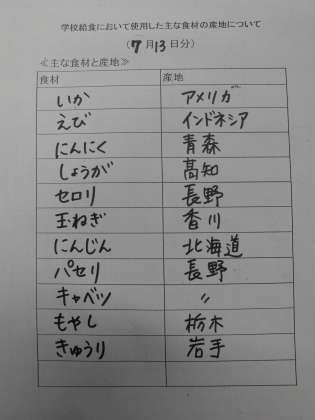 学校給食において使用した主な食材の産地について
(7月13日分)
≪主な食材と産地≫
食材 産地
いか アメリカ
えび インドネシア
にんにく 青森
しょうが 高知
セロリ 長野
玉ねぎ 香川
にんじん 北海道
パセリ 長野
キャベツ 〃
もやし 栃木
きゅうり 岩手